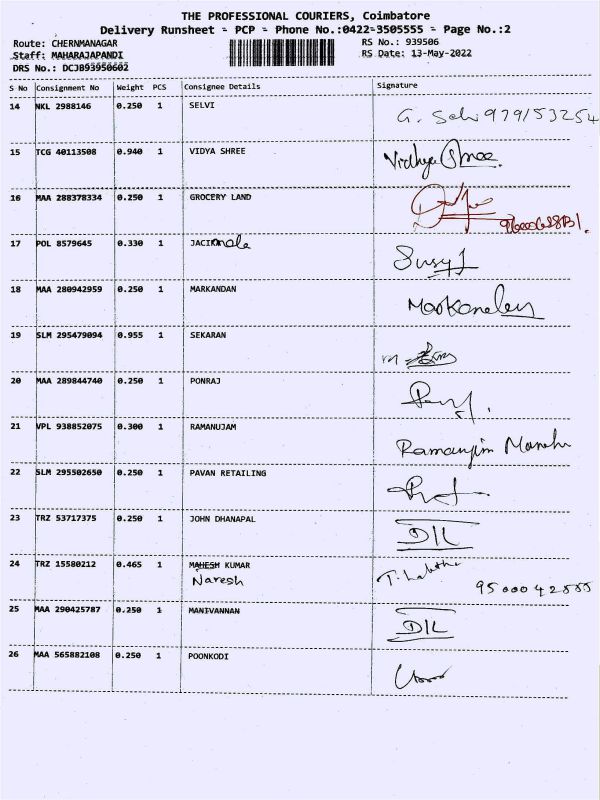 THE PROFESSIONAL COURIERS, Coimbatore
Delivery Runsheet - PCP - Phone No.:0422-3505555 - Page No.:2
Route: CHERNMANAGAR RS No.: 939506
Staff: MAHARAJAPANDI RS Date: 13-May-2022
DRS No.: DCJB93950602
S No Consignment No Weight PCS Consignee Details Signature
14 NKL 2988146 0.250 1 SELVI
15 TCG 40113508 0.940 1 VIDYA SHREE Vidhya Shree.
16 MAA 288378334 0.250 1 GROCERY LAND
17 POL 8579645 0.330 1 Susy J
18 MAA 280942959 0.250 1 MARKANDAN
19 SLM 295479094 0.955 1 SEKARAN
20 MAA 289844740 0.250 1 PONRAJ
21 VPL 938852075 0.300 1 RAMANUJAM
22 SLM 295502650 0.250 1 PAVAN RETAILING
23 TRZ 53717375 0.250 1 JOHN DHANAPAL D/L
24 TRZ 15580212 0.465 1 MAHESH KUMAR
Naresh
25 MAA 290425787 0.250 1 MANIVANNAN D/L
26 MAA 565882108 0.250 1 POONKODI